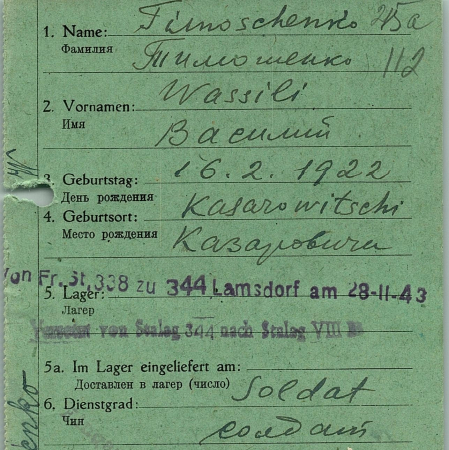 1. Name: Timoschenko 215a
Фамилия Тимошенко 112
2. Vornamen: Wassili
Имя Василий
3. Geburtstag: 16.2.1922
День рождения
4. Geburtsort: Kasarowitschi
Место рождения Казаровичи
Von Fr. St. 338 zu 344 Lamsdorf am 28-11-43
5. Lager:
Лагер
Versetzt von Stalag 344 nach Stalag VIII
5a. Im Lager eingeliefert am:
Доставлен в лагер (число)
6. Dienstgrad: Soldat
Чин солдат
enko